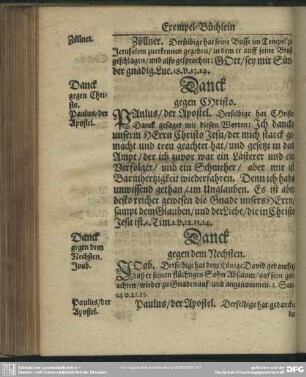 Exempel-Büchlein
Zöllner.
Zöllner. Derselbige hat seine Busse im Tempel zu
Jerusalem zuerkennen gegeben/ in dem er auff seine Brust
geschlagen/ und also gesprochen: GOtt/ sey mir Sün
der gnädig. Luc. 18. v. 13.14.
Danck
gegen Chri-
sto.
Danck
gegen Christo.
Paulus/ der
Apostel.
PAulus/ der Apostel. Derselbige hat Christo
Danck gesaget mit diesen Worten: Ich dancke
unserm HErrn Christo Jesu/ der mich starck ge
macht und treu geachtet hat/ und gesetzt in das
Ampt/ der ich zuvor war ein Lästerer und ein
Verfolger/ und ein Schmeher/ aber mir ist
Barmhertzigkeit wiederfahren. Denn ich habs
unwissend gethan/ im Unglauben. Es ist aber
desto reicher gewesen die Gnade unsers HErrn/
sampt dem Glauben/ und der Liebe/ die in Christo
Jesu ist. 1. Tim. 1. v. 12.13.14.
Danck
gegen dem
Nechsten.
Joab.
Danck
gegen dem Nechsten.
JOab. Derselbige hat dem Könige David gedancket/
daß er seinen flüchtigen Sohn Absalom/ auf sein
wieder zu Gnaden auf- und angenommen. 2. Sam.
14. v. 21.22.
Paulus/ der
Apostel.
Paulus/ der Apostel. Derselbige hat gedancket